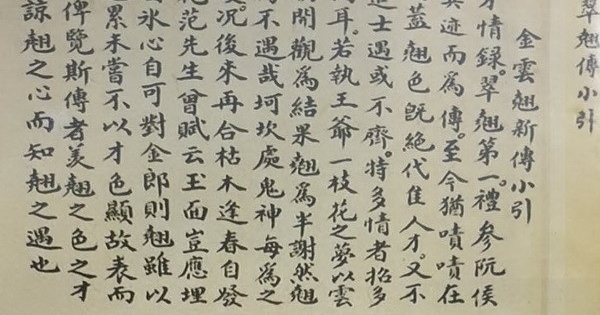 翠翹傳小引
金雲翹新傳小引
才情錄。翠翹第一。禮參阮侯
其迹而為傳。至今猶嘖嘖在
蓋翹色既絕代隹人才。又不
進士遇或不齊。特多情者招多
耳。若執王爺一枝花之夢以雲
開觀為結果翹為半謝然翹
為不遇哉坷坎處鬼神每為之
况後來再合枯木逢春自發
范先生曾賦云玉面豈應埋
氷心自可對金郎則翹雖以
累未嘗不以才色顯故表而
俾覽斯傳者羡翹之色之才
諒翹之心而知翹之遇也